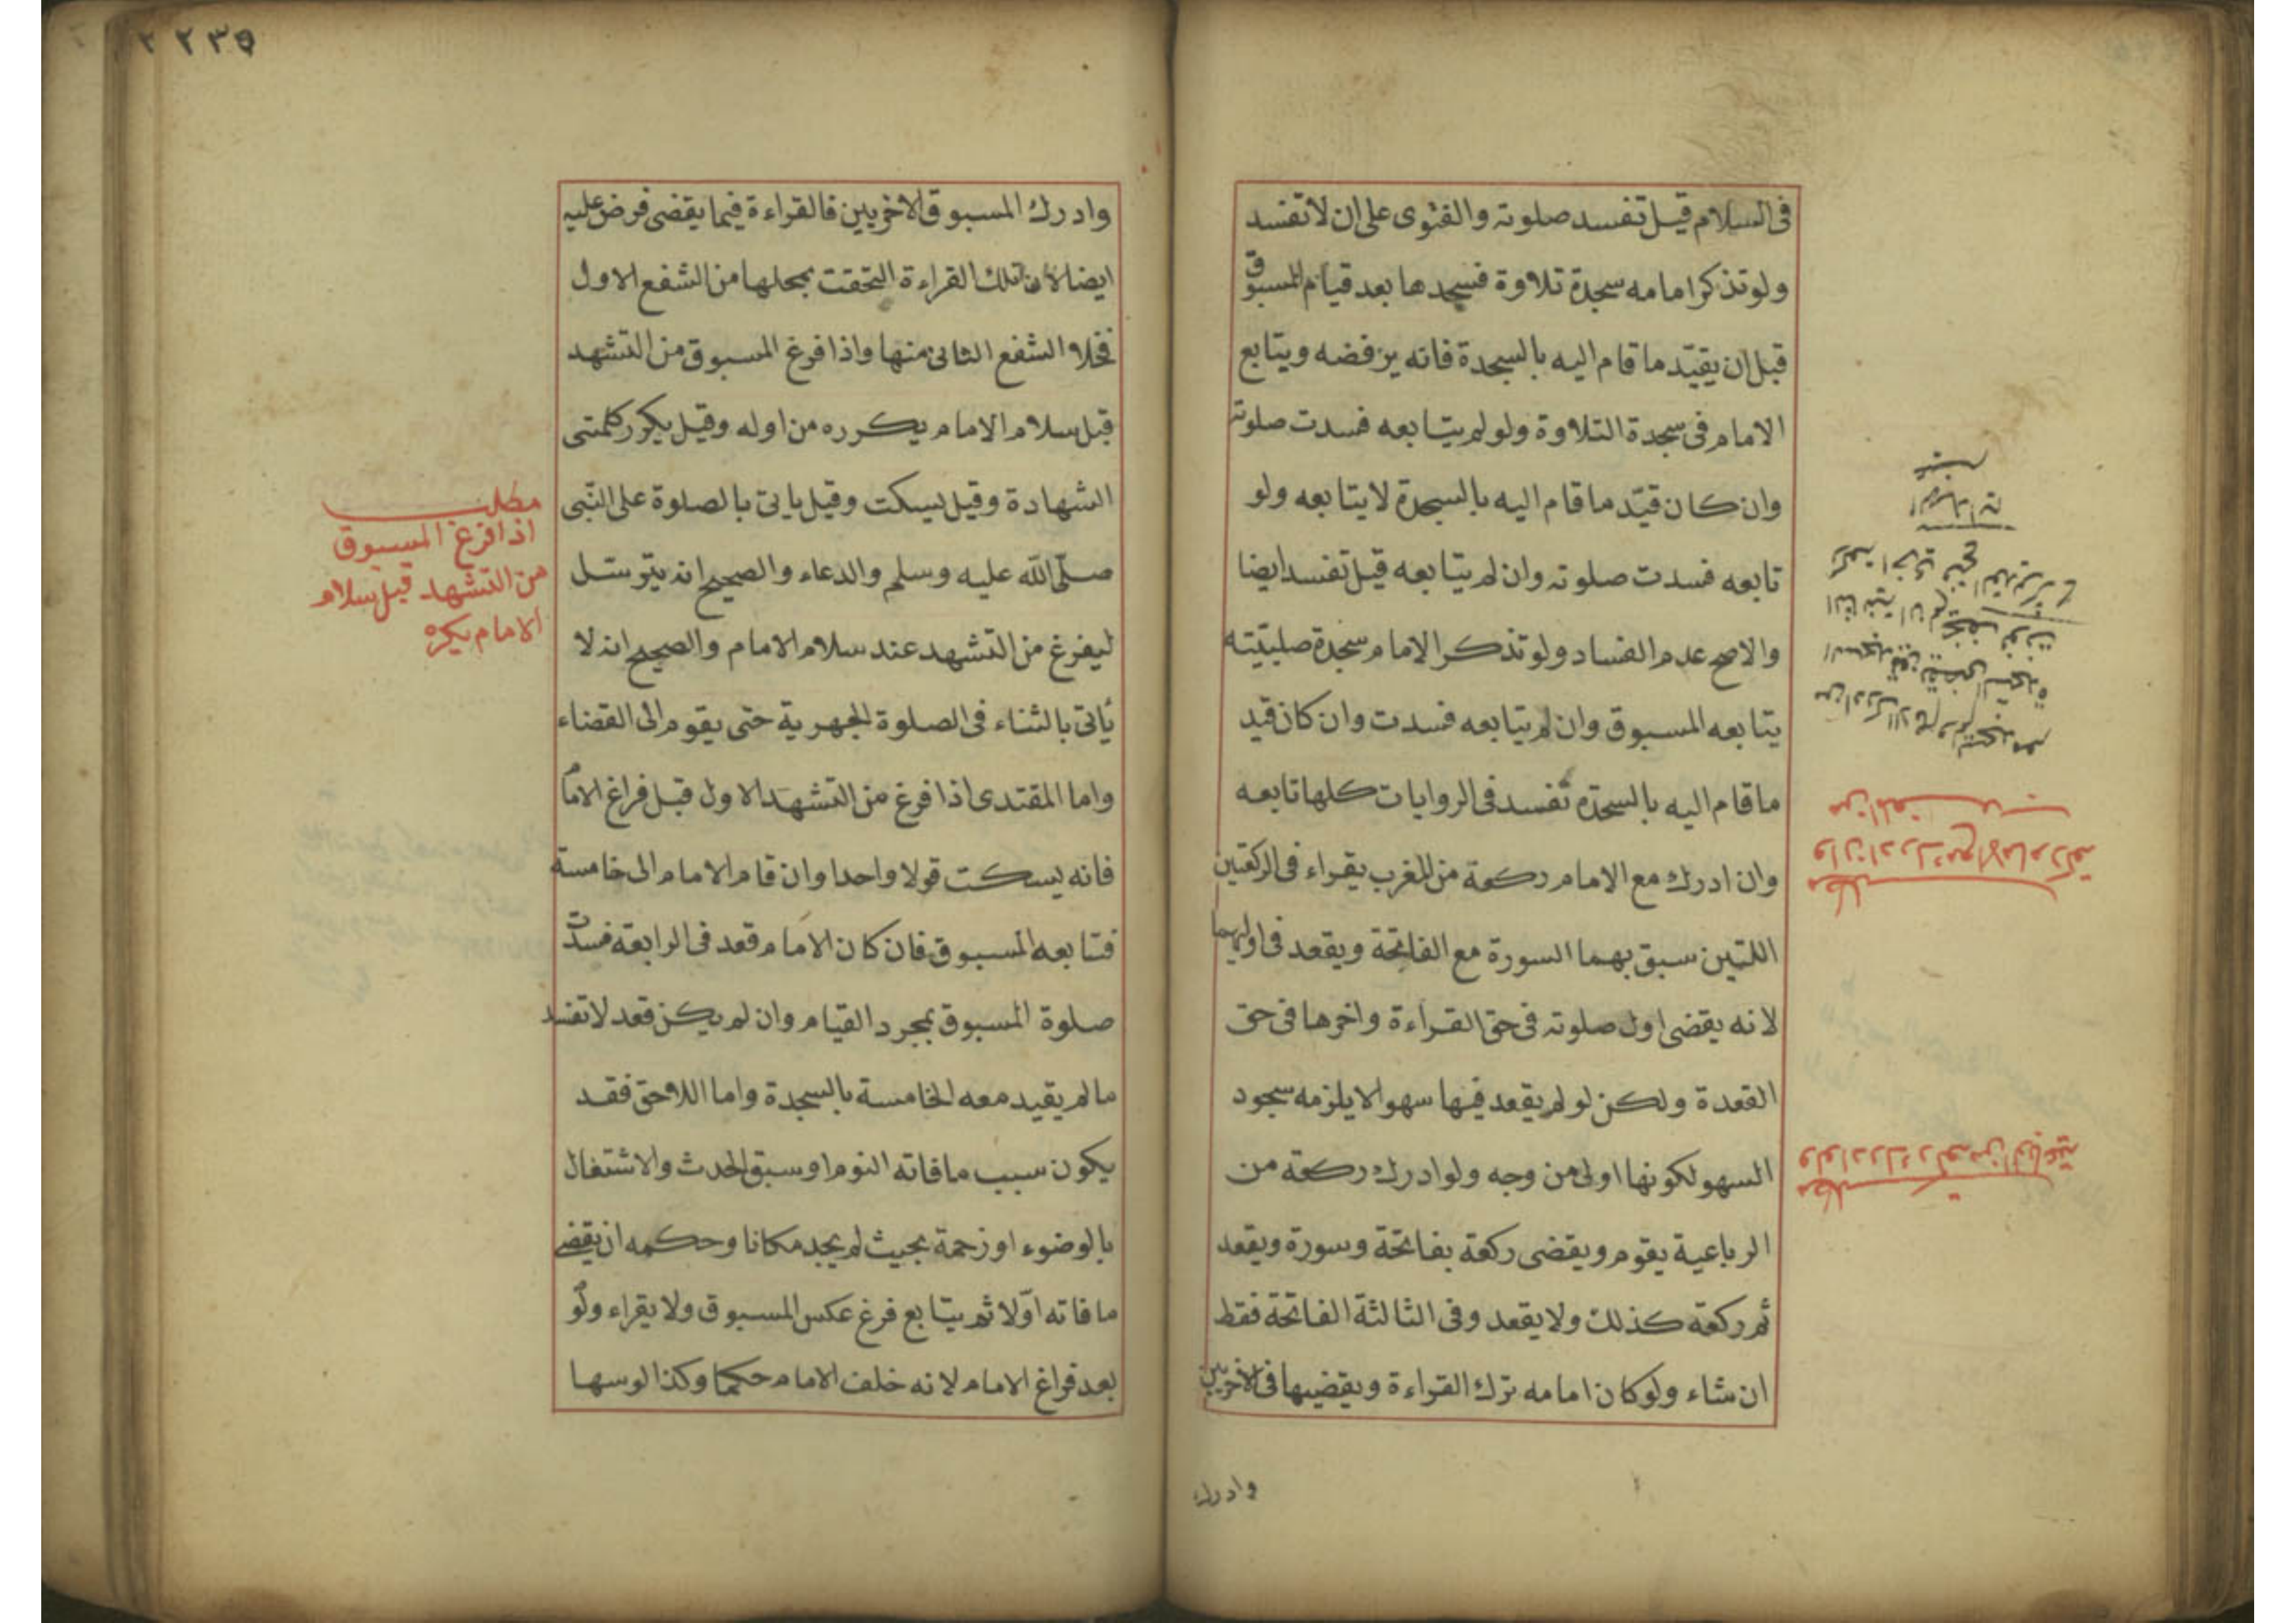 فى السلام قيل تفسد صلوته والفتوى على ان لا تفسد
ولو تذكر امامه سجدة تلاوة فسجدها بعد قيام المسبوق
قبل ان يقيّد ما قام اليه بالسجدة فانه يرفضه ويتابع
الامام فى سجدة التلاوة ولو لم يتابعه فسدت صلوته
وان كان قيّد ما قام اليه بالسجدة لا يتابعه ولو
تابعه فسدت صلوته وان لم يتابعه قيل تفسد ايضا
والاصح عدم الفساد ولو تذكر الامام سجدة صلبيّته
يتابعه المسبوق وان لم يتابعه فسدت وان كان قيد
ما قام اليه بالسجدة تفسد فى الروايات كلها تابعه
وان ادرك مع الامام ركعة من المغرب يقراء فى الركعتين
اللتين سبق بهما السورة مع الفاتحة ويقعد فى اوليهما
لانه يقضى اول صلوته فى حق القراءة واخرها فى حق
القعدة ولكن لو لم يقعد فيها سهوا لا يلزمه سجود
السهو لكونها اولى من وجه ولو ادرك ركعة من
الرباعية يقوم ويقضى ركعة بفاتحة وسورة ويقعد
ثم ركعة كذلك ولا يقعد وفى الثالثة الفاتحة فقط
ان شاء ولو كان امامه ترك القراءة ويقضيها فى الاخريين
وادرك
مطلب
وان ادرك مع الامام ركعة
من المغرب
مطلب
ولو ادرك ركعة من الرباعية
٢٣٥
وادرك المسبوق الاخريين فالقراءة فيما يقضى فرض عليه
ايضا لان تلك القراءة التحقت بمحلها من الشفع الاول
فخلا الشفع الثانى منها واذا فرغ المسبوق من التشهد
قبل سلام الامام يكرره من اوله وقيل يكرر كلمتى
الشهادة وقيل يسكت وقيل ياتى بالصلوة على النّبى
صلّى الله عليه وسلم والدعاء والصحيح انه يترسّل
ليفرغ من التشهد عند سلام الامام والصحيح انه لا
يأتى بالثناء فى الصلوة الجهرية حتى يقوم الى القضاء
واما المقتدى اذا فرغ من التشهد الاول قبل فراغ الامام
فانه يسكت قولا واحدا وان قام الامام الى خامسة
فتابعه المسبوق فان كان الامام قعد فى الرابعة فسدت
صلوة المسبوق بمجرد القيام وان لم يكن قعد لا تفسد
ما لم يقيد معه الخامسة بالسجدة واما اللاحق فقد
يكون سبب ما فاته النوم او سبق الحدث والاشتغال
بالوضوء او زحمة بحيث لم يجد مكانا وحكمه ان يقضى
ما فاته اوّلا ثم يتابع فرغ عكس المسبوق ولا يقراء ولو
بعد فراغ الامام لانه خلف الامام حكما وكذا لو سها
مطلب
اذا فرغ المسبوق
من التشهد قبل سلام
الامام يكره